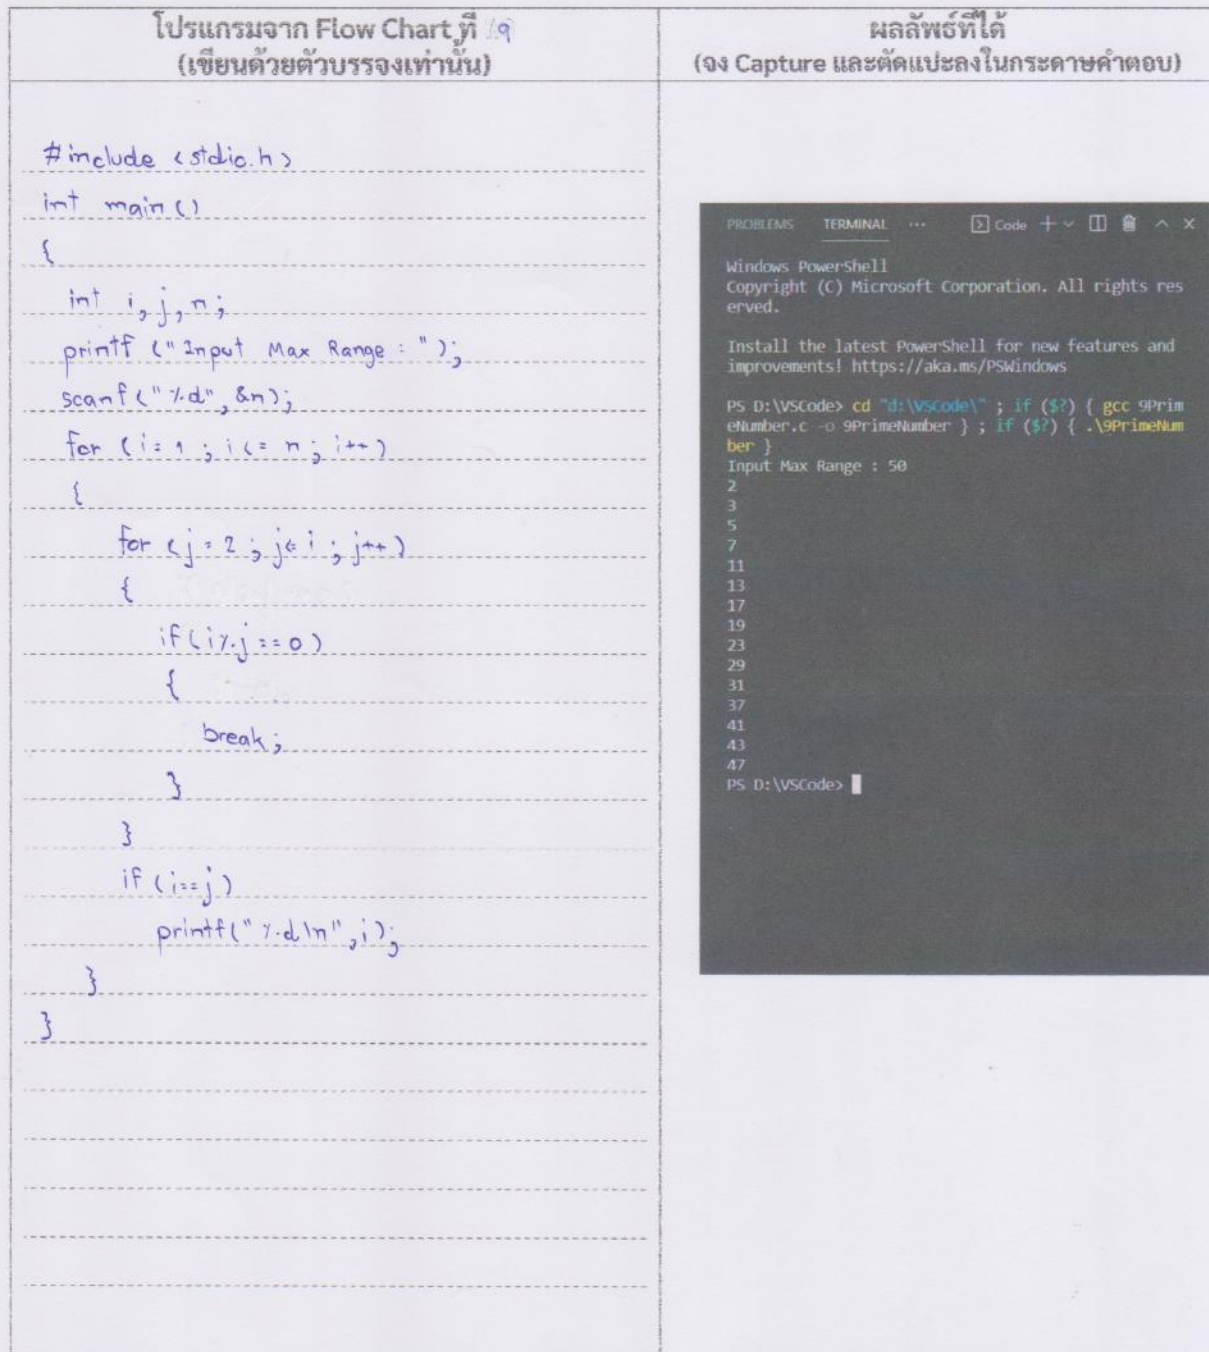 โปรแกรมจาก Flow Chart ที่ 9
(เขียนด้วยตัวบรรจงเท่านั้น)
#include <stdio.h>
int main()
{
int i,j,n;
printf ("Input Max Range : ");
scanf("%d",&n);
for (i=1;i<=n;i++)
{
for (j=2;j<=i;j++)
{
if(i%j==0)
{
break;
}
}
if(i==j)
printf("%d\n",i);
}
}
ผลลัพธ์ที่ได้
(จง Capture และตัดแปะลงในกระดาษคำตอบ)
PROBLEMS TERMINAL ... Code
Windows PowerShell
Copyright (C) Microsoft Corporation. All rights res
erved.
Install the latest PowerShell for new features and
improvements! https://aka.ms/PSWindows
PS D:\VSCode> cd "d:\VSCode\" ; if ($?) { gcc 9Prim
eNumber.c -o 9PrimeNumber } ; if ($?) { .\9PrimeNum
ber }
Input Max Range : 50
2
3
5
7
11
13
17
19
23
29
31
37
41
43
47
PS D:\VSCode>